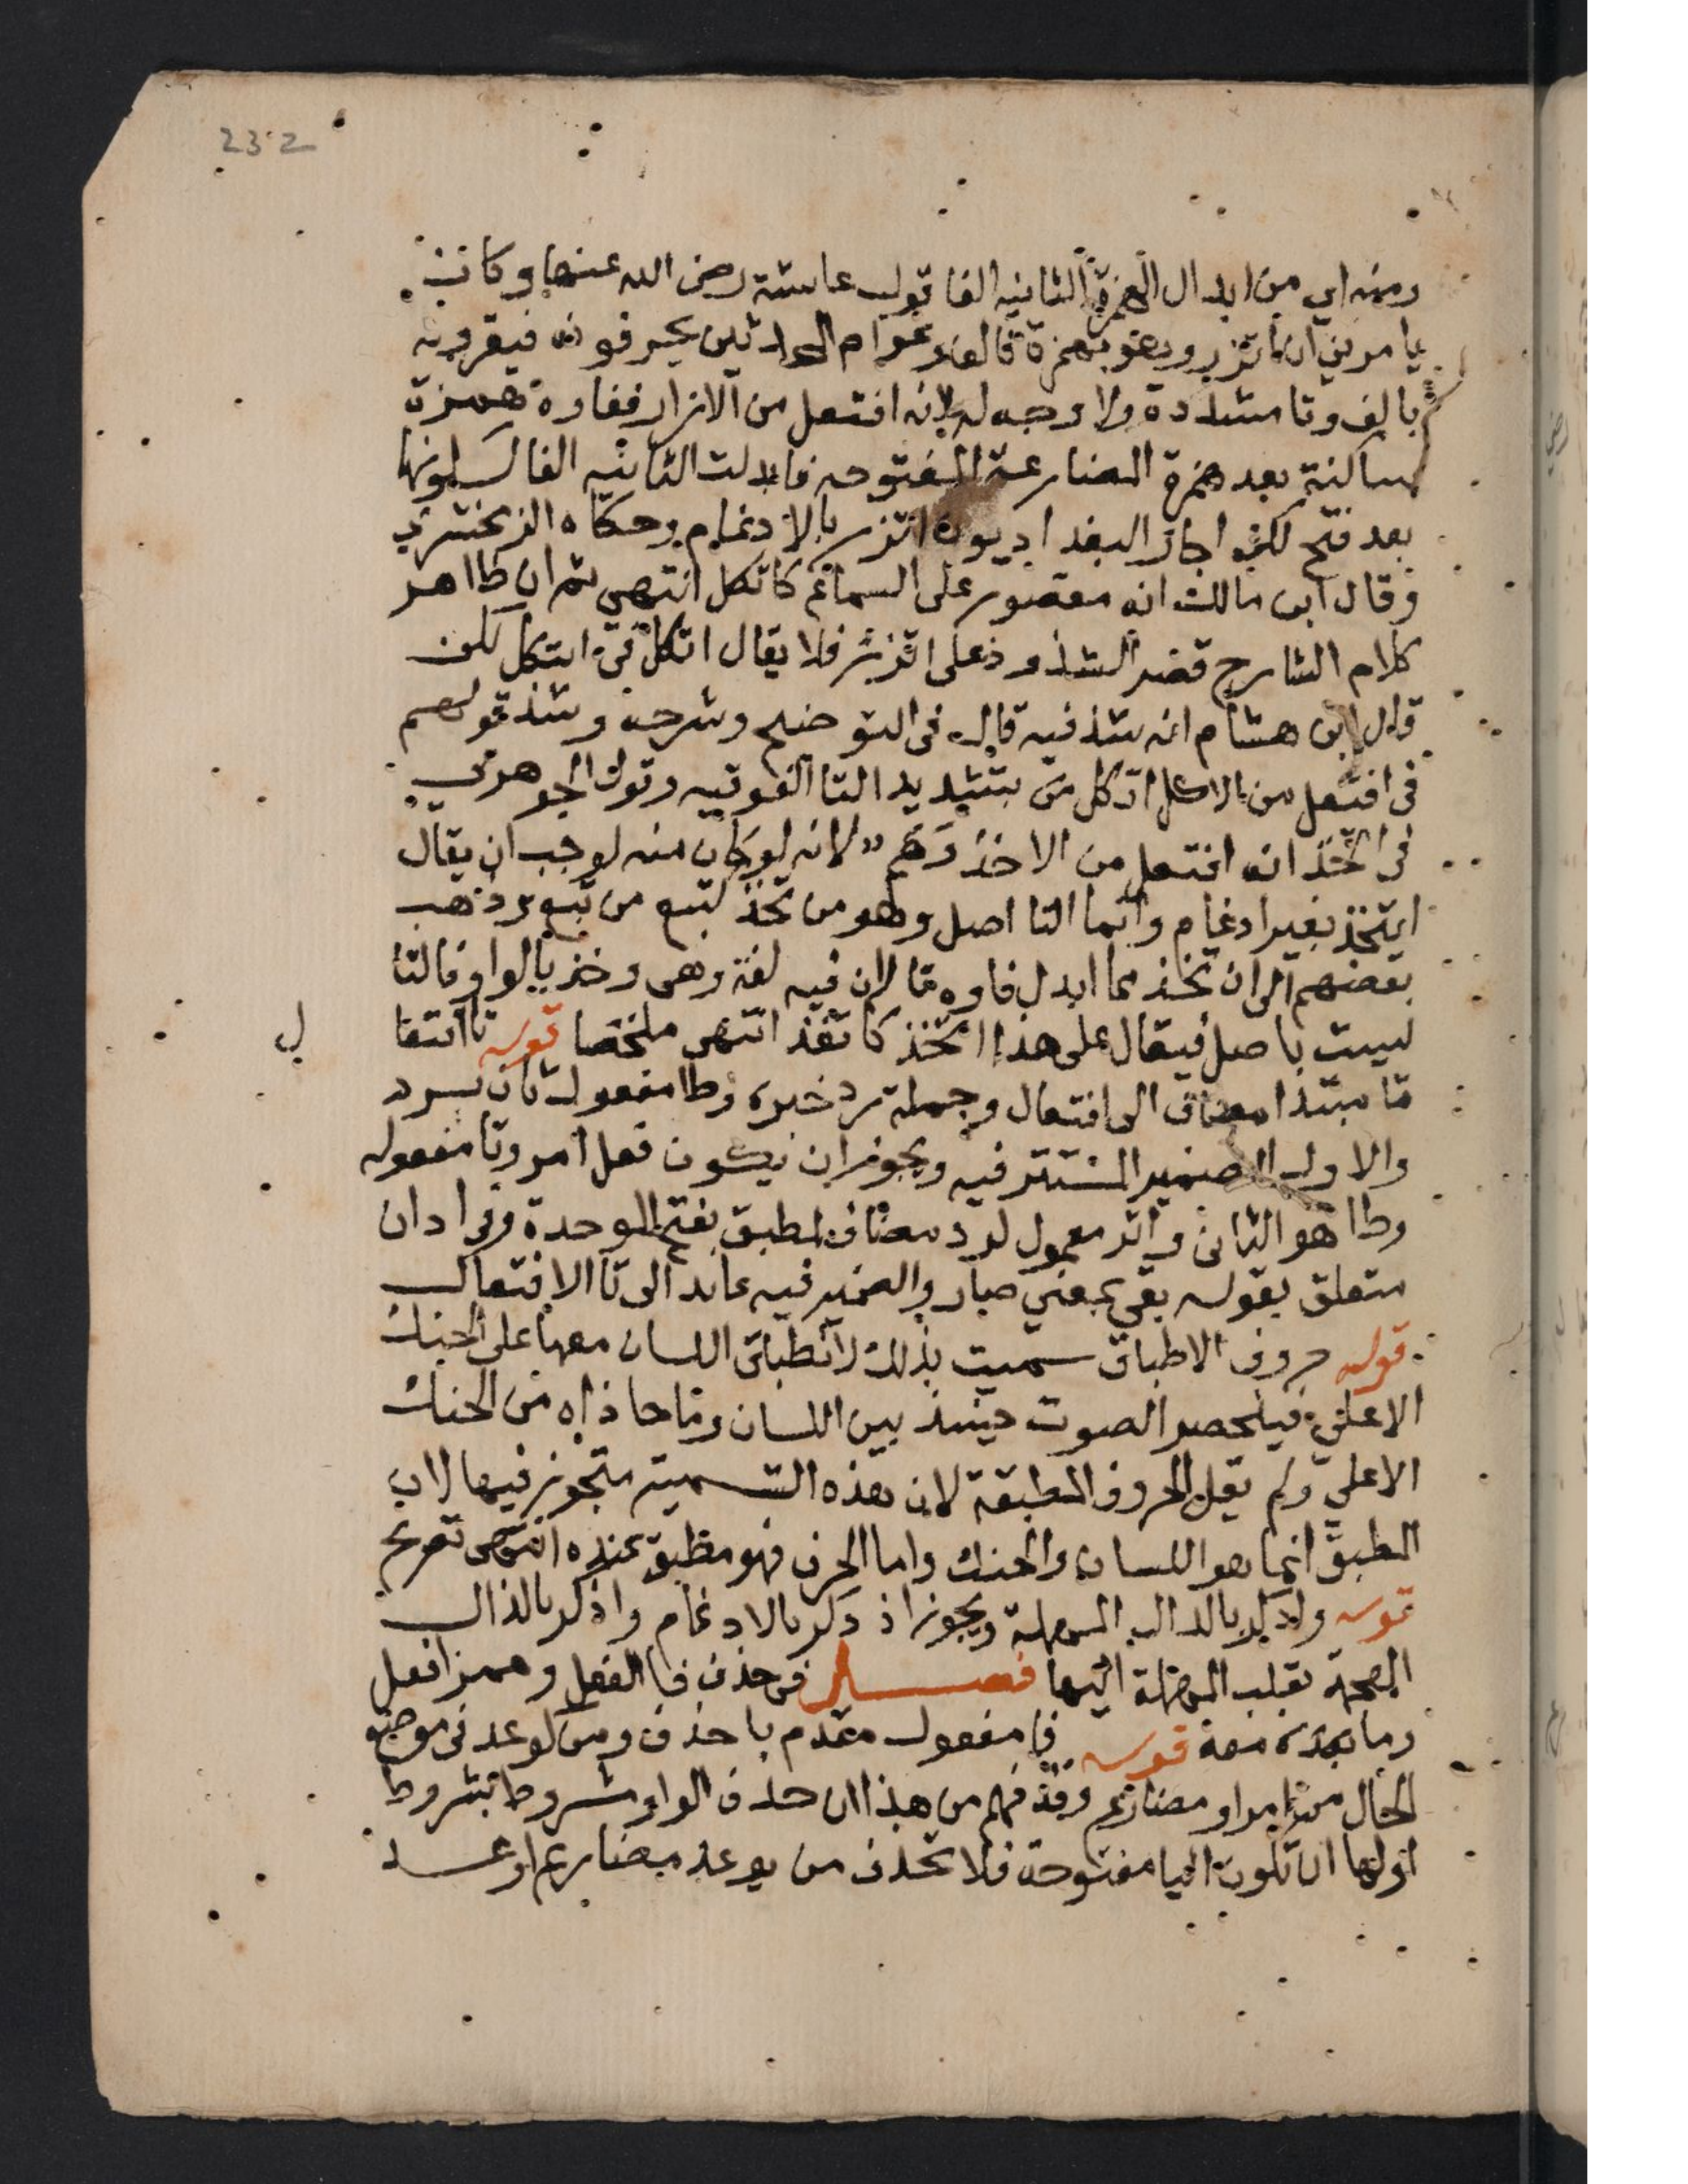 232
ومنه اي من ابدال الهمزة الثانيه الفا قول عايشة رضي الله عنها وكان
يامرني ان اتزر وهو بهمزة فالف وعوام المحدثين يحرفونه فيقرونه
بالف وتا مشددة ولا وجه له لانه افتعل من الازار ففاوه همزة
ساكنة بعد همزة المضارعة المفتوحه فابدلت الثانيه الفا لسكونها
بعد فتح لكن اجاز البغداديون اتزر بالادغام وحكاه الزمخشري
وقال ابن مالك انه مقصور على السماع كاتكل انتهي ثم ان ظاهر
كلام الشارح قصر الشذوذ على اتزر فلا يقال اتكل في ايتكل لكن
قال ابن هشام انه شذ فيه قال في التوضيح وشرحه وشذ قولهم
في افتعل من الاكل اتكل بتشديد التا الفوقيه وقول الجوهري
في اتخذ انه افتعل من الاخذ وهم لانه لو كان منه لوجب ان يقال
ايتخذ بغير ادغام وانما التا اصل وهو من تخذ كتبع من تبع وذهب
بعضهم الى ان تخذ مما ابدل فاوه تا لان فيه لغة وهي وخذ بالواو فالتا
ليست باصل فيقال على هذا اتخذ كاتقد انتهى ملخصا قوله تا افتعا
ل
تا مبتدا مضاف الى افتعال وجملة رد خبره وطا مفعول ثان لرد
والاول الضمير المستتر فيه ويجوز ان يكون فعل امر وتا مفعوله
وطا هو الثاني واثر معمول لرد مضاف لمطبق بفتح الموحدة وفي ادان
متعلق بقوله بقي بمعني صار والضمير فيه عايد الى تا الافتعال
قوله حروف الاطباق سميت بذلك لانطباق اللسان معها على الحنك
الاعلي فينحصر الصوت حينئذ بين اللسان وما حاذاه من الحنك
الاعلي ولم يقل الحروف المطبقة لان هذه التسمية متجوز فيها لان
المطبق انما هو اللسان والحنك واما الحرف فهو مطبق عنده انتهى تصريح
قوله وادكر بالدال المهملة ويجوز اذدكر بالادغام واذكر بالذال
المعجمة بقلب المهملة اليها فصل في حذف فا الفعل وهمز افعل
وما بعده معه قوله فا مفعول مقدم باحذف ومن كوعد في موضع
الحال من امر او مضارع وقد فهم من هذا ان حذف الواو مشروط بشروط
اولها ان تكون اليا مفتوحة فلا تحذف من يوعد مضارع اوعد